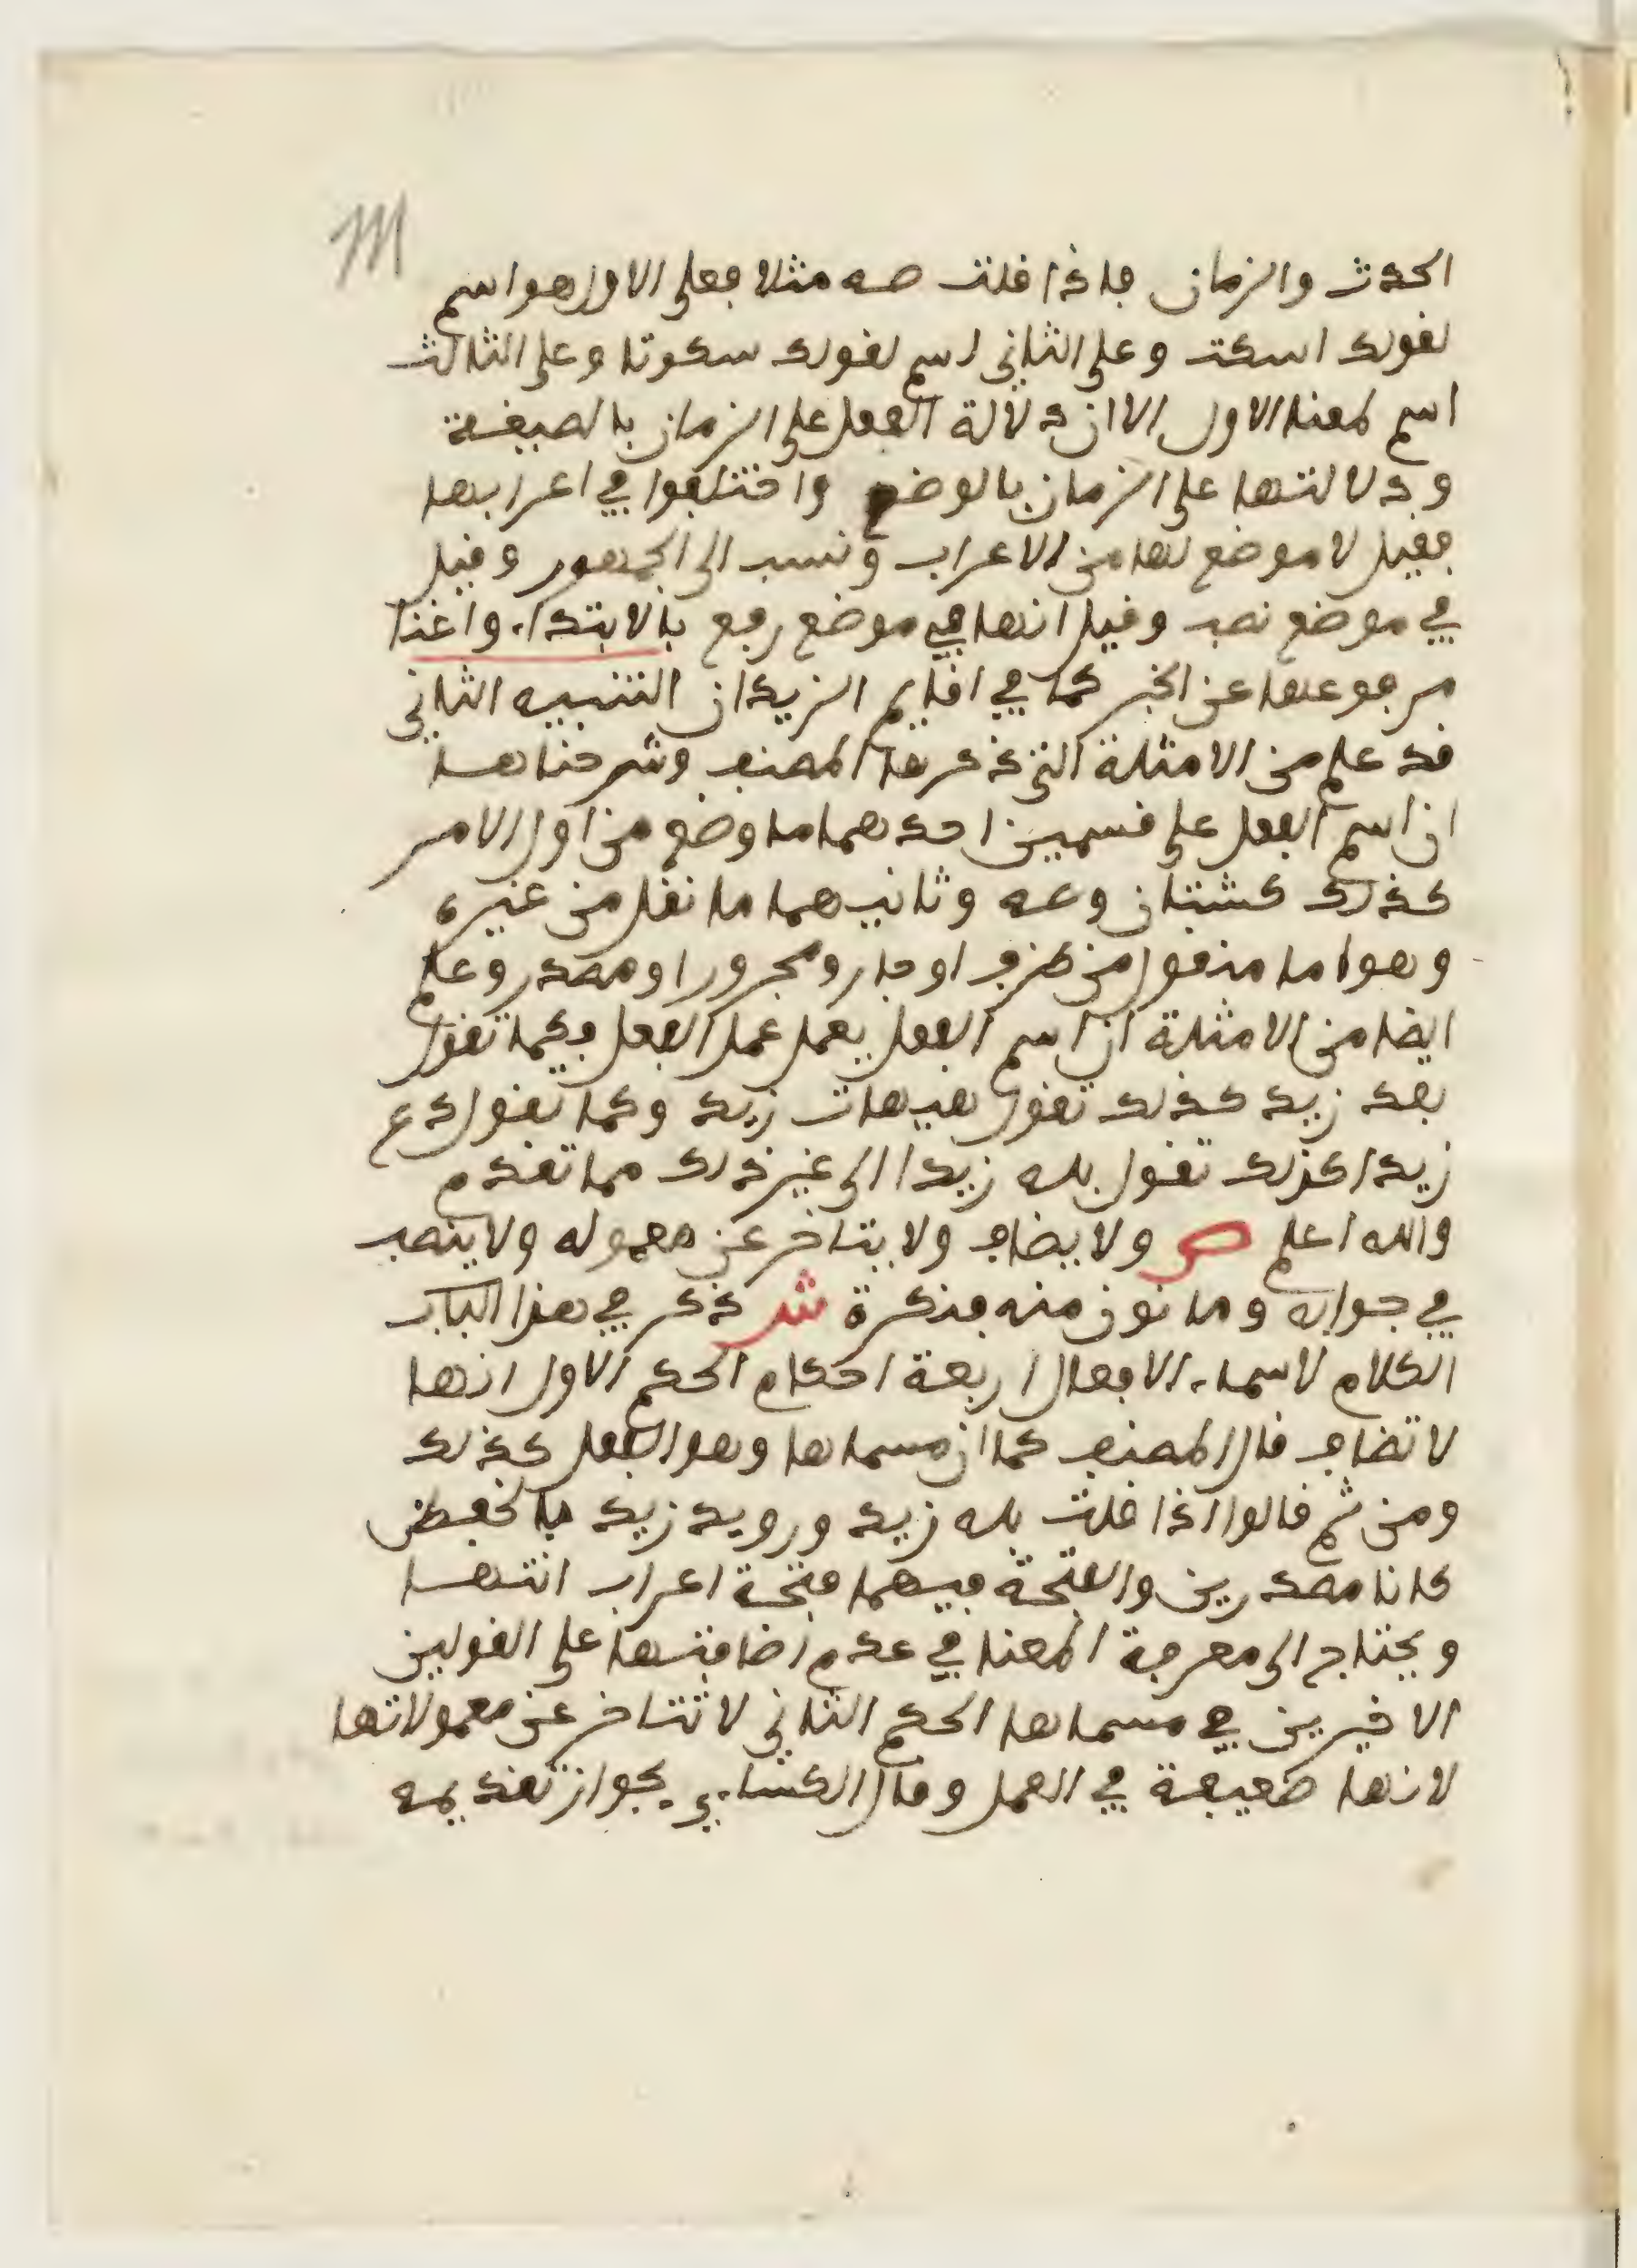 الحدث والزمان فاذا قلت صه مثلا فعلى الاول هو اسم
لقولك اسكت وعلى الثاني اسم لقولك سكوتا وعلى الثالث
اسم لمعنا الاول الا ان دلالة الفعل على الزمان بالصيغة
ودلالتها على الزمان بالوضع واختلفوا في اعرابها
فقيل لا موضع لها من الاعراب ونسب الى الجمهور وقيل
في موضع نصب وقيل انها في موضع رفع بالابتداء واغنا
مرفوعها عن الخبر كما في اقايم الزيدان التنبيه الثاني
قد علم من الامثلة التي ذكرها المصنف وشرحناها
ان اسم الفعل على قسمين احدهما ما وضع من اول الامر
كذلك كشتان وصه وثانيهما ما نقل من غيره
وهو اما منقول من ظرف او جار ومجرور او مصدر وعلم
ايضا من الامثلة ان اسم الفعل يعمل عمل الفعل فكما تقول
بعد زيد كذلك تقول هيهات زيد وكما تقول دع
زيدا كذلك تقول بله زيدا الى غير ذلك مما تقدم
والله اعلم ص ولا يضاف ولا يتاخر عن معموله ولا ينصب
في جوابه وما نون منه فنكرة ش ذكر في هذا الباب
الكلام لاسماء الافعال اربعة احكام الحكم الاول انها
لا تضاف قال المصنف كما ان مسماها وهو الفعل كذلك
ومن ثم قالوا اذا قلت بله زيد ورويد زيد بالخفض
كانا مصدرين والفتحة فيهما فتحة اعراب انتها
ويحتاج الى معرفة المعنا في عدم اضافتها على القولين
الاخيرين في مسماها الحكم الثاني لا تتاخر عن معمولاتها
لانها ضعيفة في العمل وقال الكساءي يجواز تقديمه